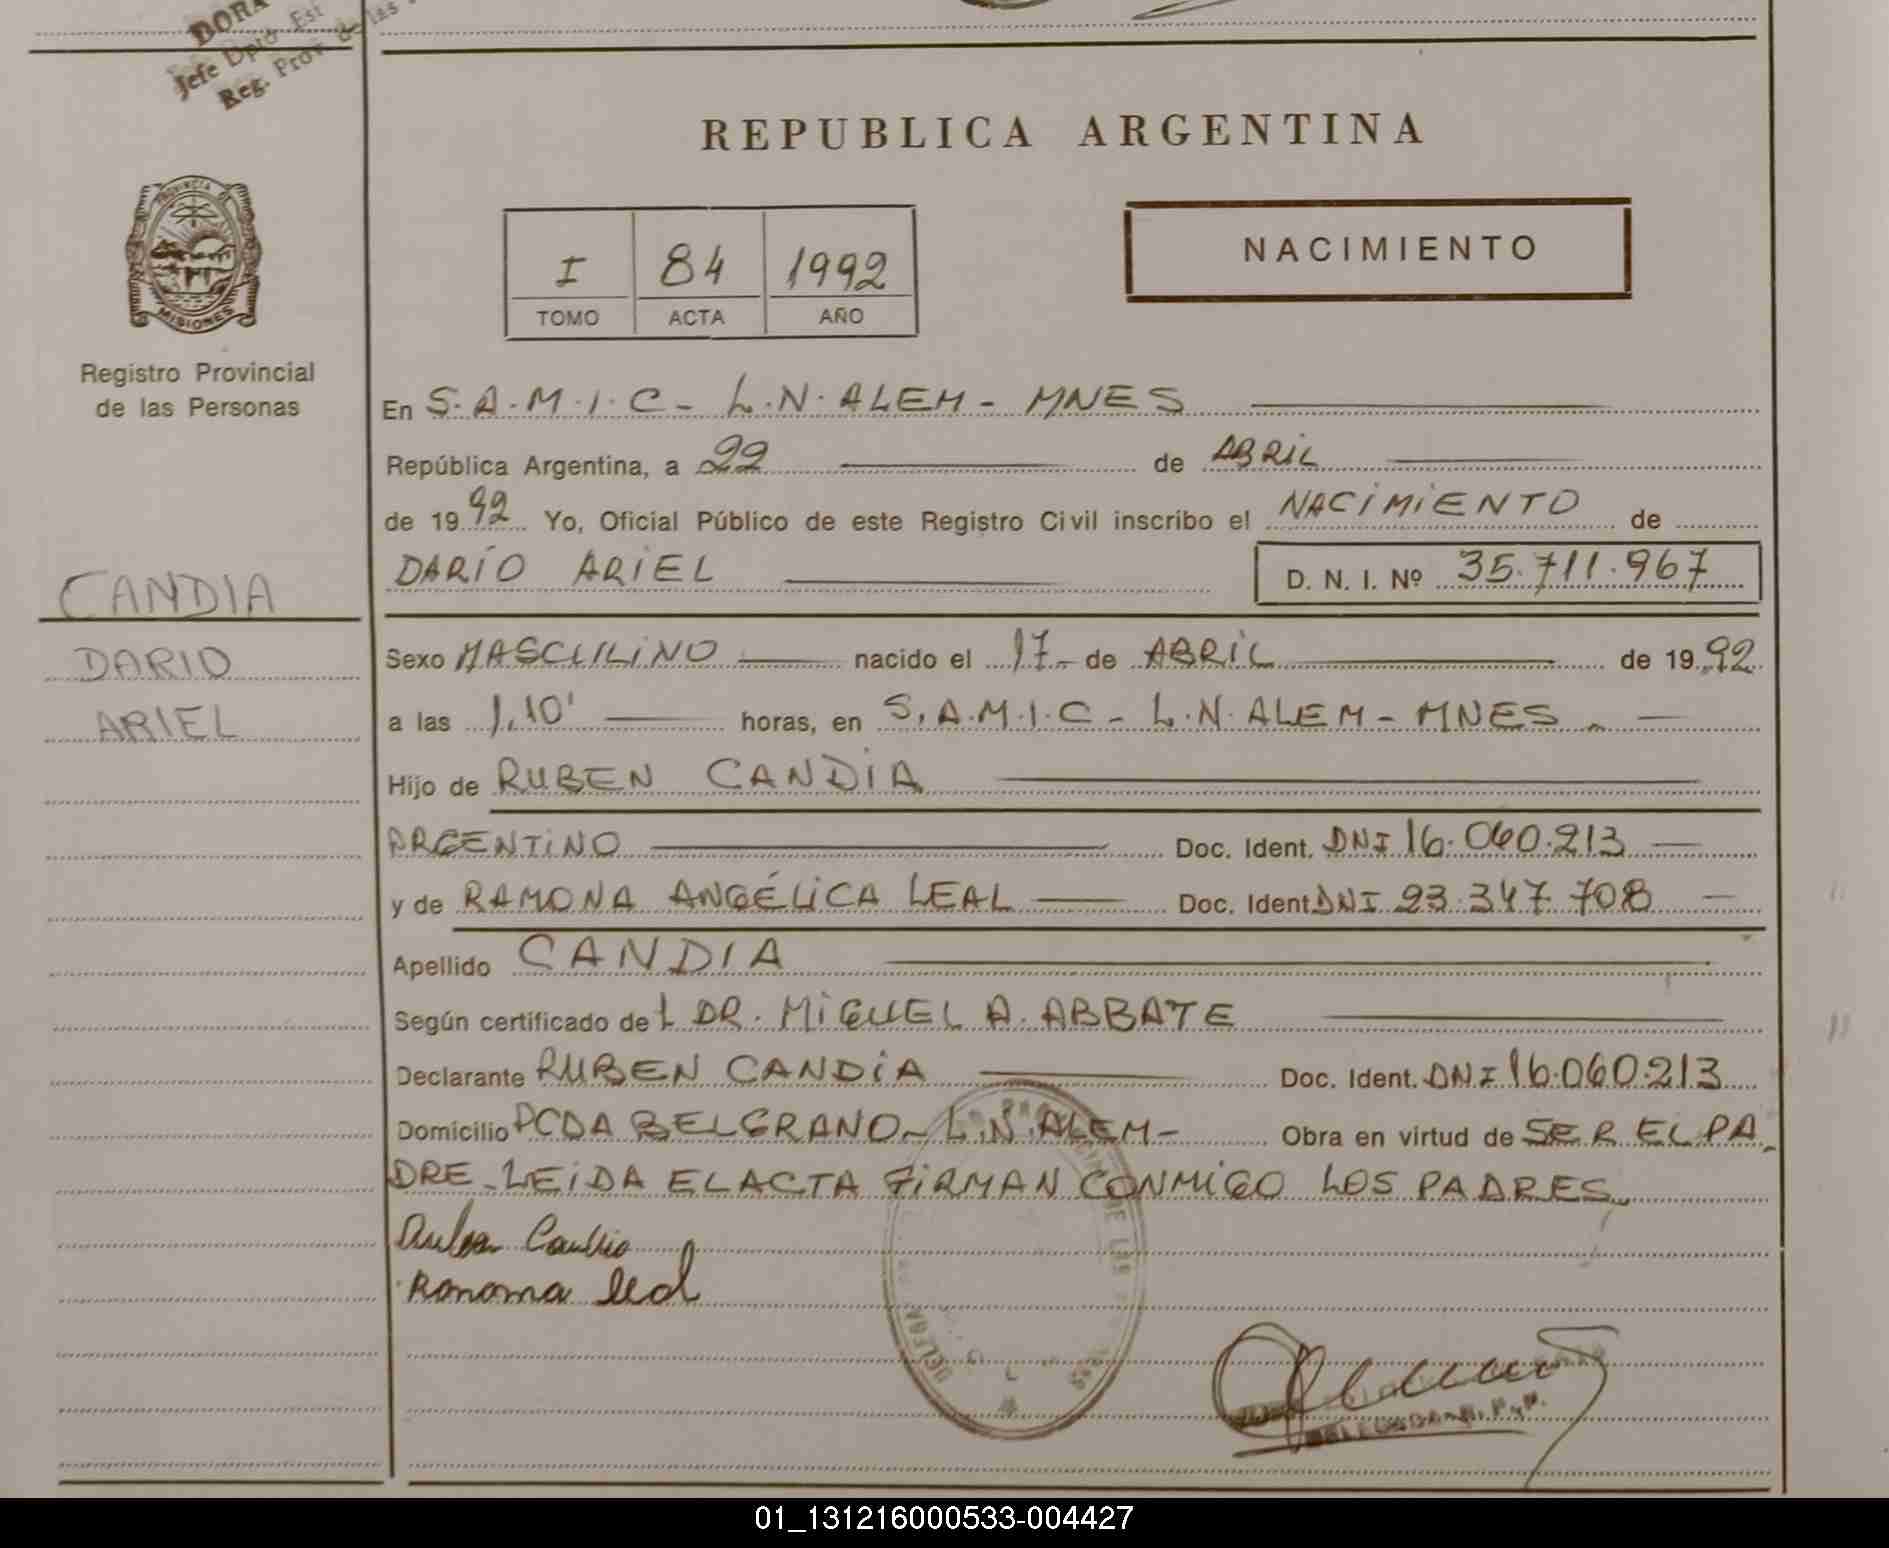 DORA
Jefe Dpto. Est
Reg. Prov de las
REPUBLICA ARGENTINA
PROVINCIA DE
MISIONES
I 84 1992
TOMO ACTA AÑO
NACIMIENTO
Registro Provincial
de las Personas
En S.A.M.I.C - L.N. ALEM - MNES
República Argentina, a 22 de ABRIL
de 1992 Yo, Oficial Público de este Registro Civil inscribo el NACIMIENTO de
DARÍO ARIEL D. N. I. Nº 35.711.967
CANDIA
DARIO
ARIEL
Sexo MASCULINO nacido el 17 - de ABRIL de 1992
a las 1,10' horas, en S.A.M.I.C - L.N. ALEM - MNES -
Hijo de RUBEN CANDIA
ARGENTINO Doc. Ident. DNI 16.060.213
y de RAMONA ANGÉLICA LEAL Doc. Ident DNI 23.347.708
Apellido CANDIA
Según certificado del DR. MIGUEL A. ABBATE
Declarante RUBEN CANDIA Doc. Ident. DNI 16.060.213
Domicilio PCDA BELGRANO - L.N. ALEM - Obra en virtud de SER EL PA
DRE - LEIDA EL ACTA FIRMAN CONMIGO LOS PADRES
Ruben Candia
Ramona Leal
01_131216000533-004427